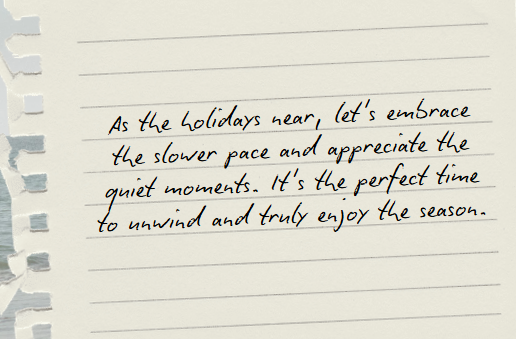 As the holidays near, let's embrace
the slower pace and appreciate the
quiet moments. It's the perfect time
to unwind and truly enjoy the season.